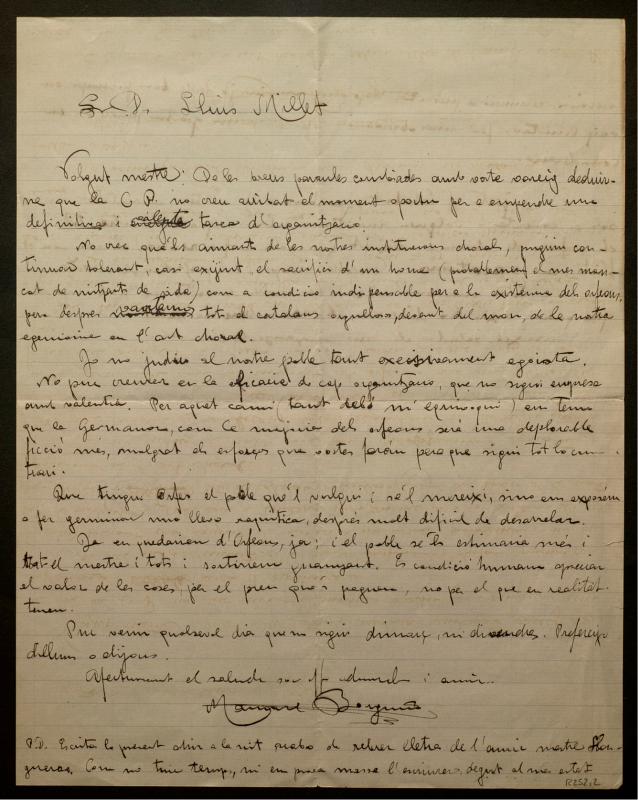 Sr. D. Lluis Millet
Volgut mestre: De les breus paraules cambiades amb vosté vareig deduir-
ne que la C. P. no creu arribat el moment oportu per a empendre una
definitiva i tasca d'organització.
No crec qu'els aimants de les nostres institucions chorals, puguin con-
tinuar tolerant, casi exijint, el sacrifici d'un home (probablement el mes man-
cat de mitjants de vida) com a condició indispensable per a la existencia del orfeons,
pera després tots el catalans orgullosos, devant del mon, de la nostra
egemonia en l'art choral.
Jo no judico al nostre poble tant excesivament egoista.
No puc creurer en la eficacia de cap organització, que no sigui empresa
amb valentia. Per aquet cami (tant debó m'equivoqui) em temo
que la Germanor, com la majoria dels orfeons será una deplorable
ficció més, malgrat els esforços que vostes farán pera que sigui tot lo con-
trari.
Que tingui Orfeó el poble qué'l vulgui i se'l mereixi, sino ens exposém
a fer germinar una llevor raquitica, després molt dificil de desarrelar.
Ja en quedarien d'Orfeons, ja; i el poble se'ls estimaria més i
tot el mestre i tots i sortiriem guanyant. Es condició humana apreciar
el valor de les coses, per el preu que's paguen, no pel el que en realitat
tenen.
Puc venir qualsevol dia que no sigui dimarç, ni divendres. Prefereixo
dilluns o dijous.
Afectuosament el saluda son aff. admirador i amic.
Manuel Borguñó
P.D. Escrita la present ahir a la nit acabo de rebrer lletra de l'amic mestre Llon-
gueras. Com no tinc temps, ni em prova massa l'escriure, degut al meu estat
R252,2